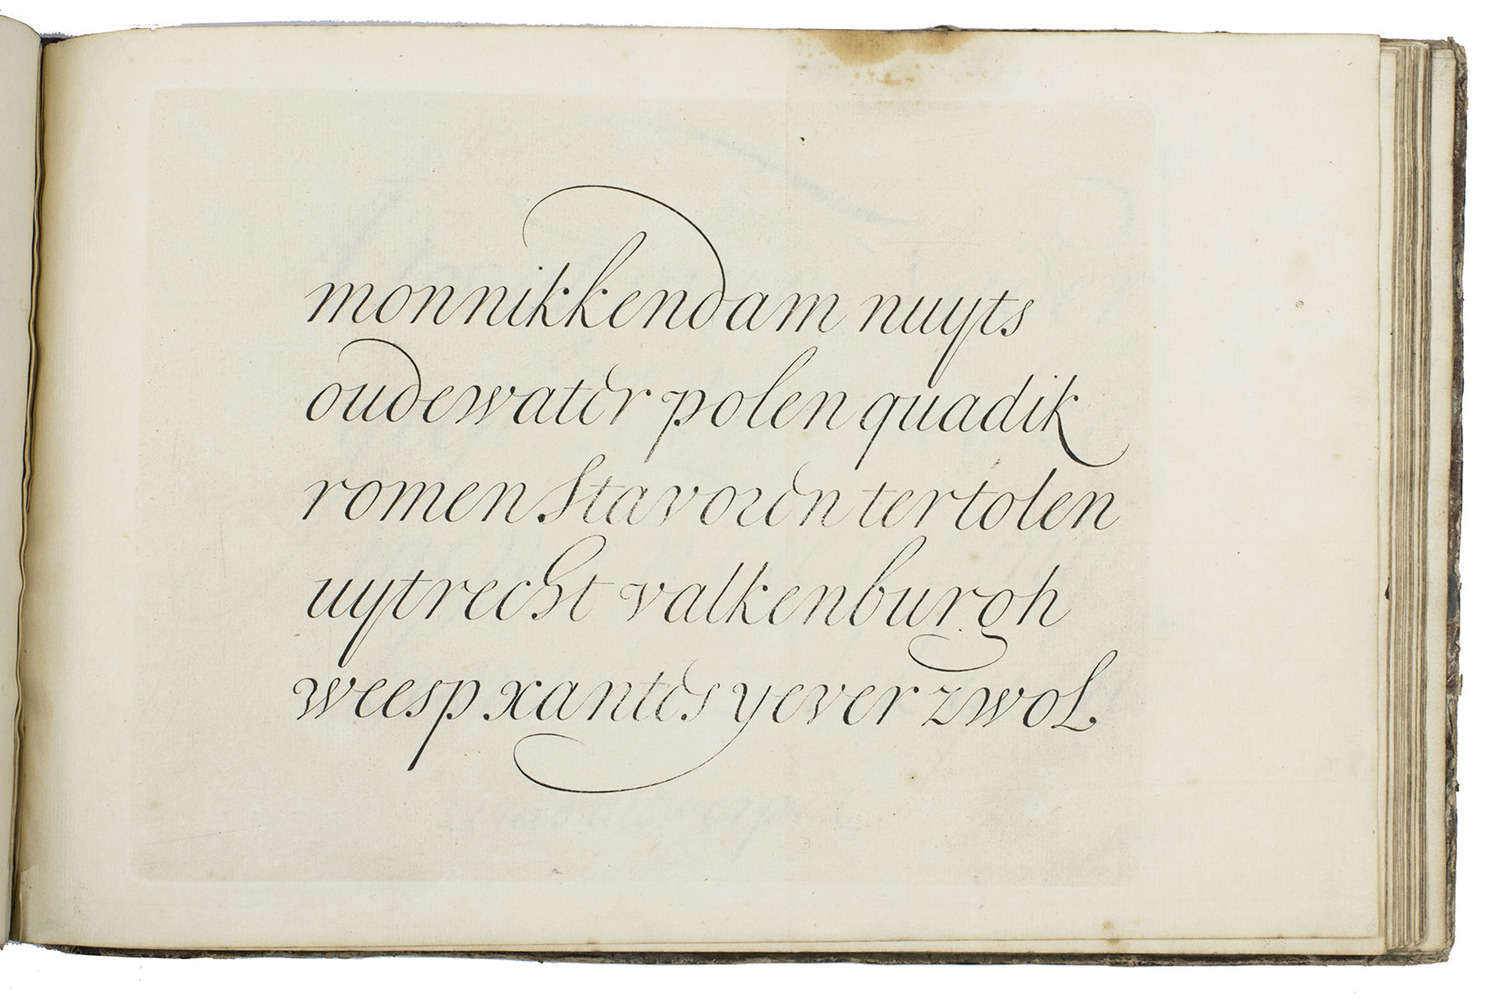 monnikkendam nuyts
oudewater polen quadik
romen Stavoren tertolen
uytrecht valkenburgh
weesp xantes yever zwol.